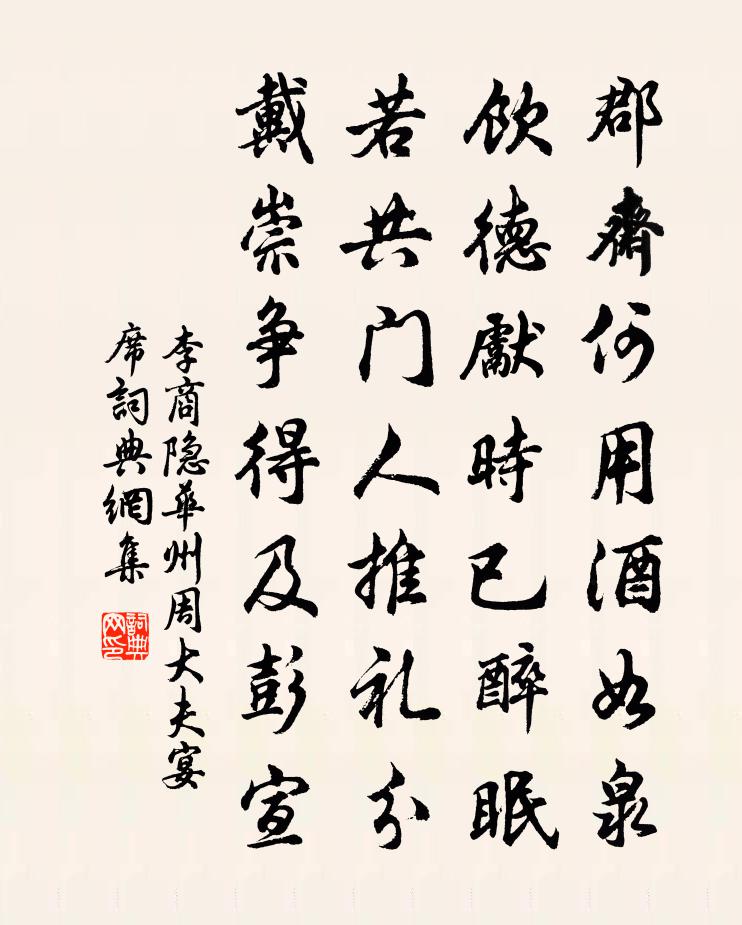 郡齋何用酒如泉
飲德獻時已醉眠
若共门人推礼分
戴崇争得及彭宣
李商隐華州周大夫宴
席詞典網集
詞典网印